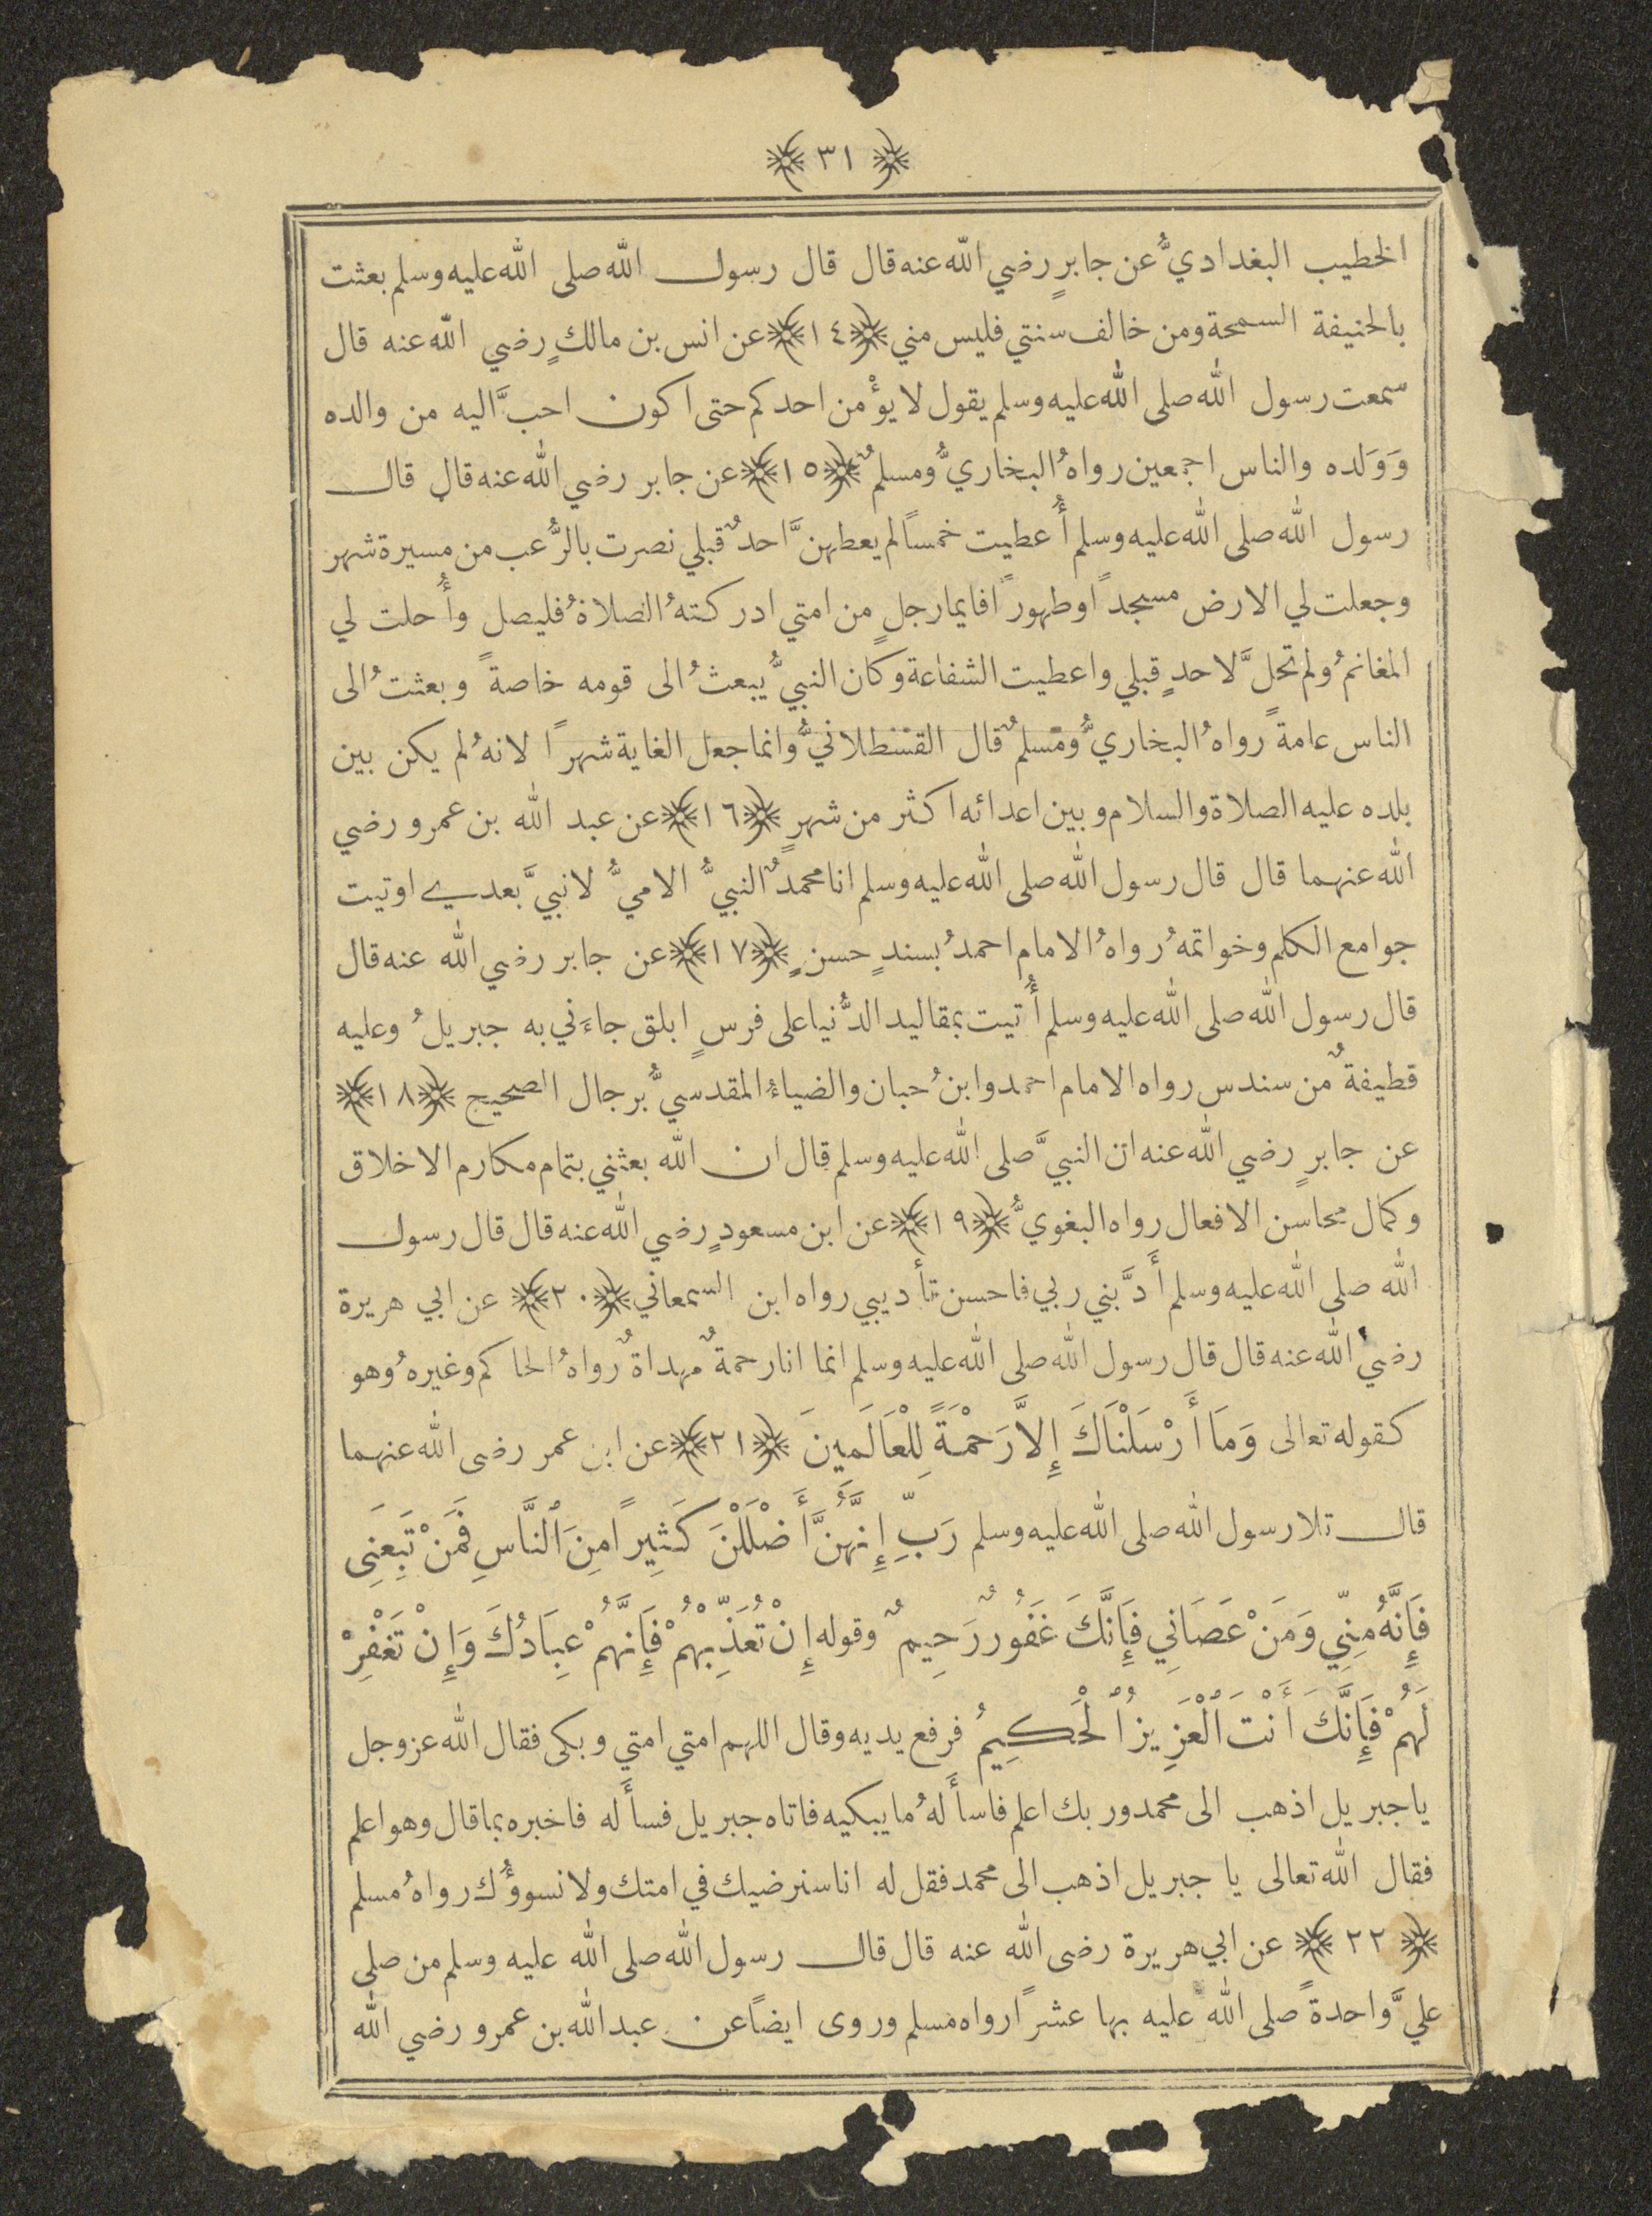 ﴿ ٣١ ﴾
الخطيب البغداديُّ عن جابرٍ رضي الله عنه قال قال رسول الله صلى الله عليه وسلم بعثت
بالحنيفة السمحة ومن خالف سنتي فليس مني ﴿١٤﴾ عن انس بن مالكٍ رضي الله عنه قال
سمعت رسول الله صلى الله عليه وسلم يقول لا يؤْمن احدكم حتى اكون احبَّ اليه من والده
وَوَلده والناس اجمعين رواهُ البخاريُّ ومسلمٌ ﴿١٥﴾ عن جابر رضي الله عنه قال قال
رسول الله صلى الله عليه وسلم أُعطيت خمساً لم يعطهنَّ احدٌ قبلي نصرت بالرُّعب من مسيرة شهر
وجعلت لي الارض مسجداً وطهوراً فايما رجلٍ من امتي ادركتهُ الصلاةُ فليصل وأُحلت لي
المغانمُ ولم تحلَّ لاحدٍ قبلي واعطيت الشفاعة وكان النبيُّ يبعثُ الى قومه خاصةً وبعثتُ الى
الناس عامةً رواهُ البخاريُّ ومسلمٌ قال القسطلانيُّ وانما جعل الغاية شهراً لانهُ لم يكن بين
بلده عليه الصلاة والسلام وبين اعدائه اكثر من شهرٍ ﴿١٦﴾ عن عبد الله بن عمرو رضي
الله عنهما قال قال رسول الله صلى الله عليه وسلم انا محمدٌ النبيُّ الاميُّ لا نبيَّ بعدي اوتيت
جوامع الكلم وخواتمهُ رواهُ الامام احمدُ بسندٍ حسنٍ ﴿١٧﴾ عن جابر رضي الله عنه قال
قال رسول الله صلى الله عليه وسلم أُتيت بمقاليد الدُّنيا على فرسٍ ابلق جاءَني به جبريلُ وعليه
قطيفةٌ من سندس رواه الامام احمد وابنُ حبان والضياءُ المقدسيُّ برجال الصحيح ﴿١٨﴾
عن جابرٍ رضي الله عنه ان النبيَّ صلى الله عليه وسلم قال ان الله بعثني بتمام مكارم الاخلاق
وكمال محاسن الافعال رواه البغويُّ ﴿١٩﴾ عن ابن مسعودٍ رضي الله عنه قال قال رسول
الله صلى الله عليه وسلم أَدَّبني ربي فاحسن تأديبي رواه ابن السمعاني ﴿٢٠﴾ عن ابي هريرة
رضي الله عنه قال قال رسول الله صلى الله عليه وسلم انما انا رحمةٌ مهداةٌ رواهُ الحاكم وغيرهُ وهو
كقوله تعالى وَمَا أَرْسَلْنَاكَ إِلاَّ رَحْمَةً لِلْعَالَمِينَ ﴿٢١﴾ عن ابن عمر رضى الله عنهما
قال تلا رسول الله صلى الله عليه وسلم رَبِّ إِنَّهُنَّ أَضْلَلْنَ كَثِيراً مِنَ ٱلنَّاسِ فَمَنْ تَبِعَنِى
فَإِنَّهُ مِنِّي وَمَنْ عَصَانِي فَإِنَّكَ غَفُورٌ رَحِيمٌ وقوله إِنْ تُعَذِّبْهُمْ فَإِنَّهُمْ عِبَادُكَ وَإِنْ تَغْفِرْ
لَهُمْ فَإِنَّكَ أَنْتَ ٱلْعَزِيزُ ٱلْحَكِيمُ فرفع يديه وقال اللهم امتي امتي وبكى فقال الله عز وجل
يا جبريل اذهب الى محمد وربك اعلم فاسأَلهُ ما يبكيه فاتاه جبريل فسأَله فاخبره بما قال وهو اعلم
فقال الله تعالى يا جبريل اذهب الى محمد فقل له انا سنرضيك في امتك ولا نسووُّك رواهُ مسلم
﴿ ٢٢ ﴾ عن ابي هريرة رضى الله عنه قال قال رسول الله صلى الله عليه وسلم من صلى
عليَّ واحدةً صلى الله عليه بها عشراً رواه مسلم وروى ايضاً عن عبد الله بن عمرو رضي الله